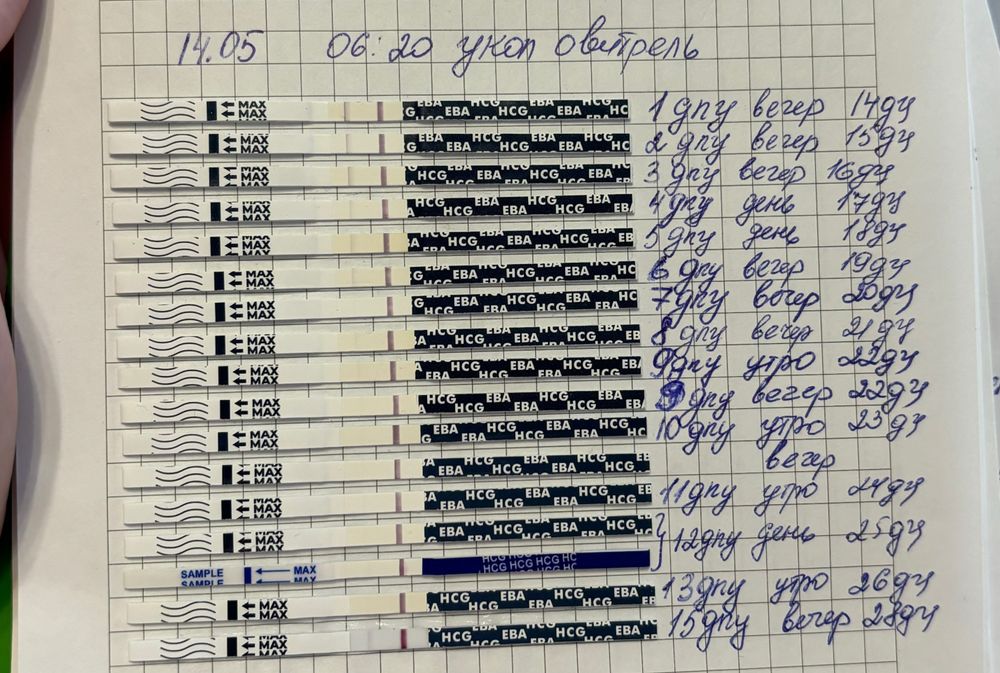 14.05 06:20 укол овитрель
MAX MAX HCG EBA HCG EBA HCG 1 дпу вечер 14дц
MAX MAX EBA HCG EBA HCG 2 дпу вечер 15дц
MAX MAX HCG EBA HCG EBA HCG 3 дпу вечер 16дц
MAX MAX HCG EBA HCG EBA 4дпу день 17дц
MAX MAX HCG EBA HCG EBA 5 дпу день 18дц
MAX MAX EBA HCG EBA HCG 6 дпу вечер 19дц
MAX MAX HCG EBA HCG EBA 7дпу вечер 20дц
MAX MAX EBA HCG EBA HCG 8 дпу вечер 21дц
MAX MAX EBA HCG EBA HCG 9дпу утро 22дц
MAX MAX EBA HCG EBA HCG 9 дпу вечер 22дц
MAX MAX EBA HCG EBA HCG 10 дпу утро 23дц
MAX MAX EBA HCG EBA HCG вечер
MAX MAX HCG EBA HCG EBA 11дпу утро 24дц
MAX MAX EBA HCG EBA HCG 12дпу день 25дц
SAMPLE SAMPLE MAX MAX HCG HCG HCG HCG
MAX MAX HCG EBA HCG EBA 13дпу утро 26дц
MAX MAX HCG EBA HCG EBA 15дпу вечер 28дц